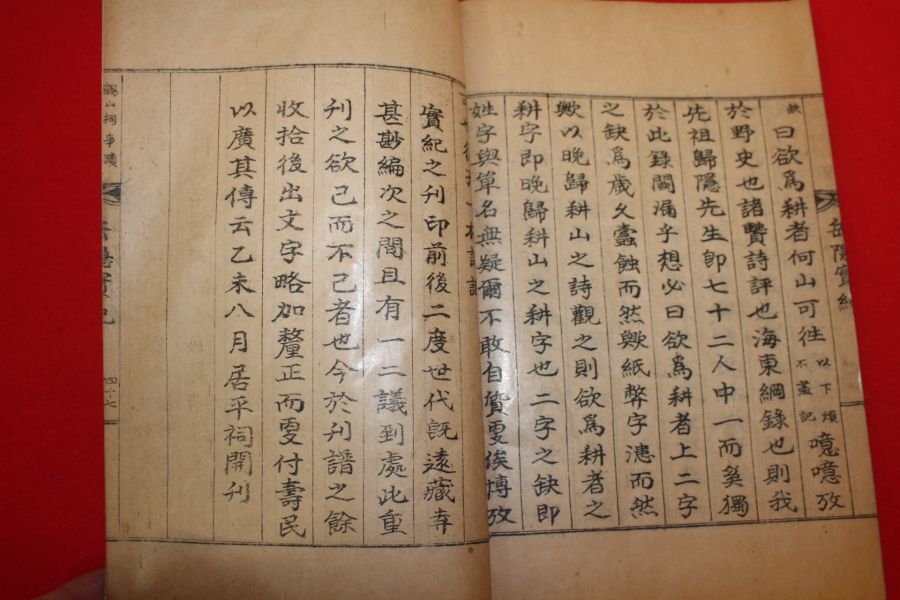 岳隱實紀
缺
曰欲爲耕者何山可徃以下煩不盡記噫噫攷
於野史也諸贊詩評也海東綱錄也則我
先祖歸隱先生卽七十二人中一而奚獨
於此錄闕漏乎想必曰欲爲耕者上二字
之缺爲歲久蠹蝕而然歟紙弊字漶而然
歟以晩歸耕山之詩觀之則欲爲耕者之
耕字卽晩歸耕山之耕字也二字之缺卽
姓字與單名無疑爾不敢自賃更俟博攷
實紀之刊印前後二度世代旣遠藏弆
甚尠編次之間且有一二議到處此重
刊之欲已而不已者也今於刊譜之餘
收拾後出文字略加釐正而更付壽民
以廣其傳云乙未八月居平祠開刊
四十七